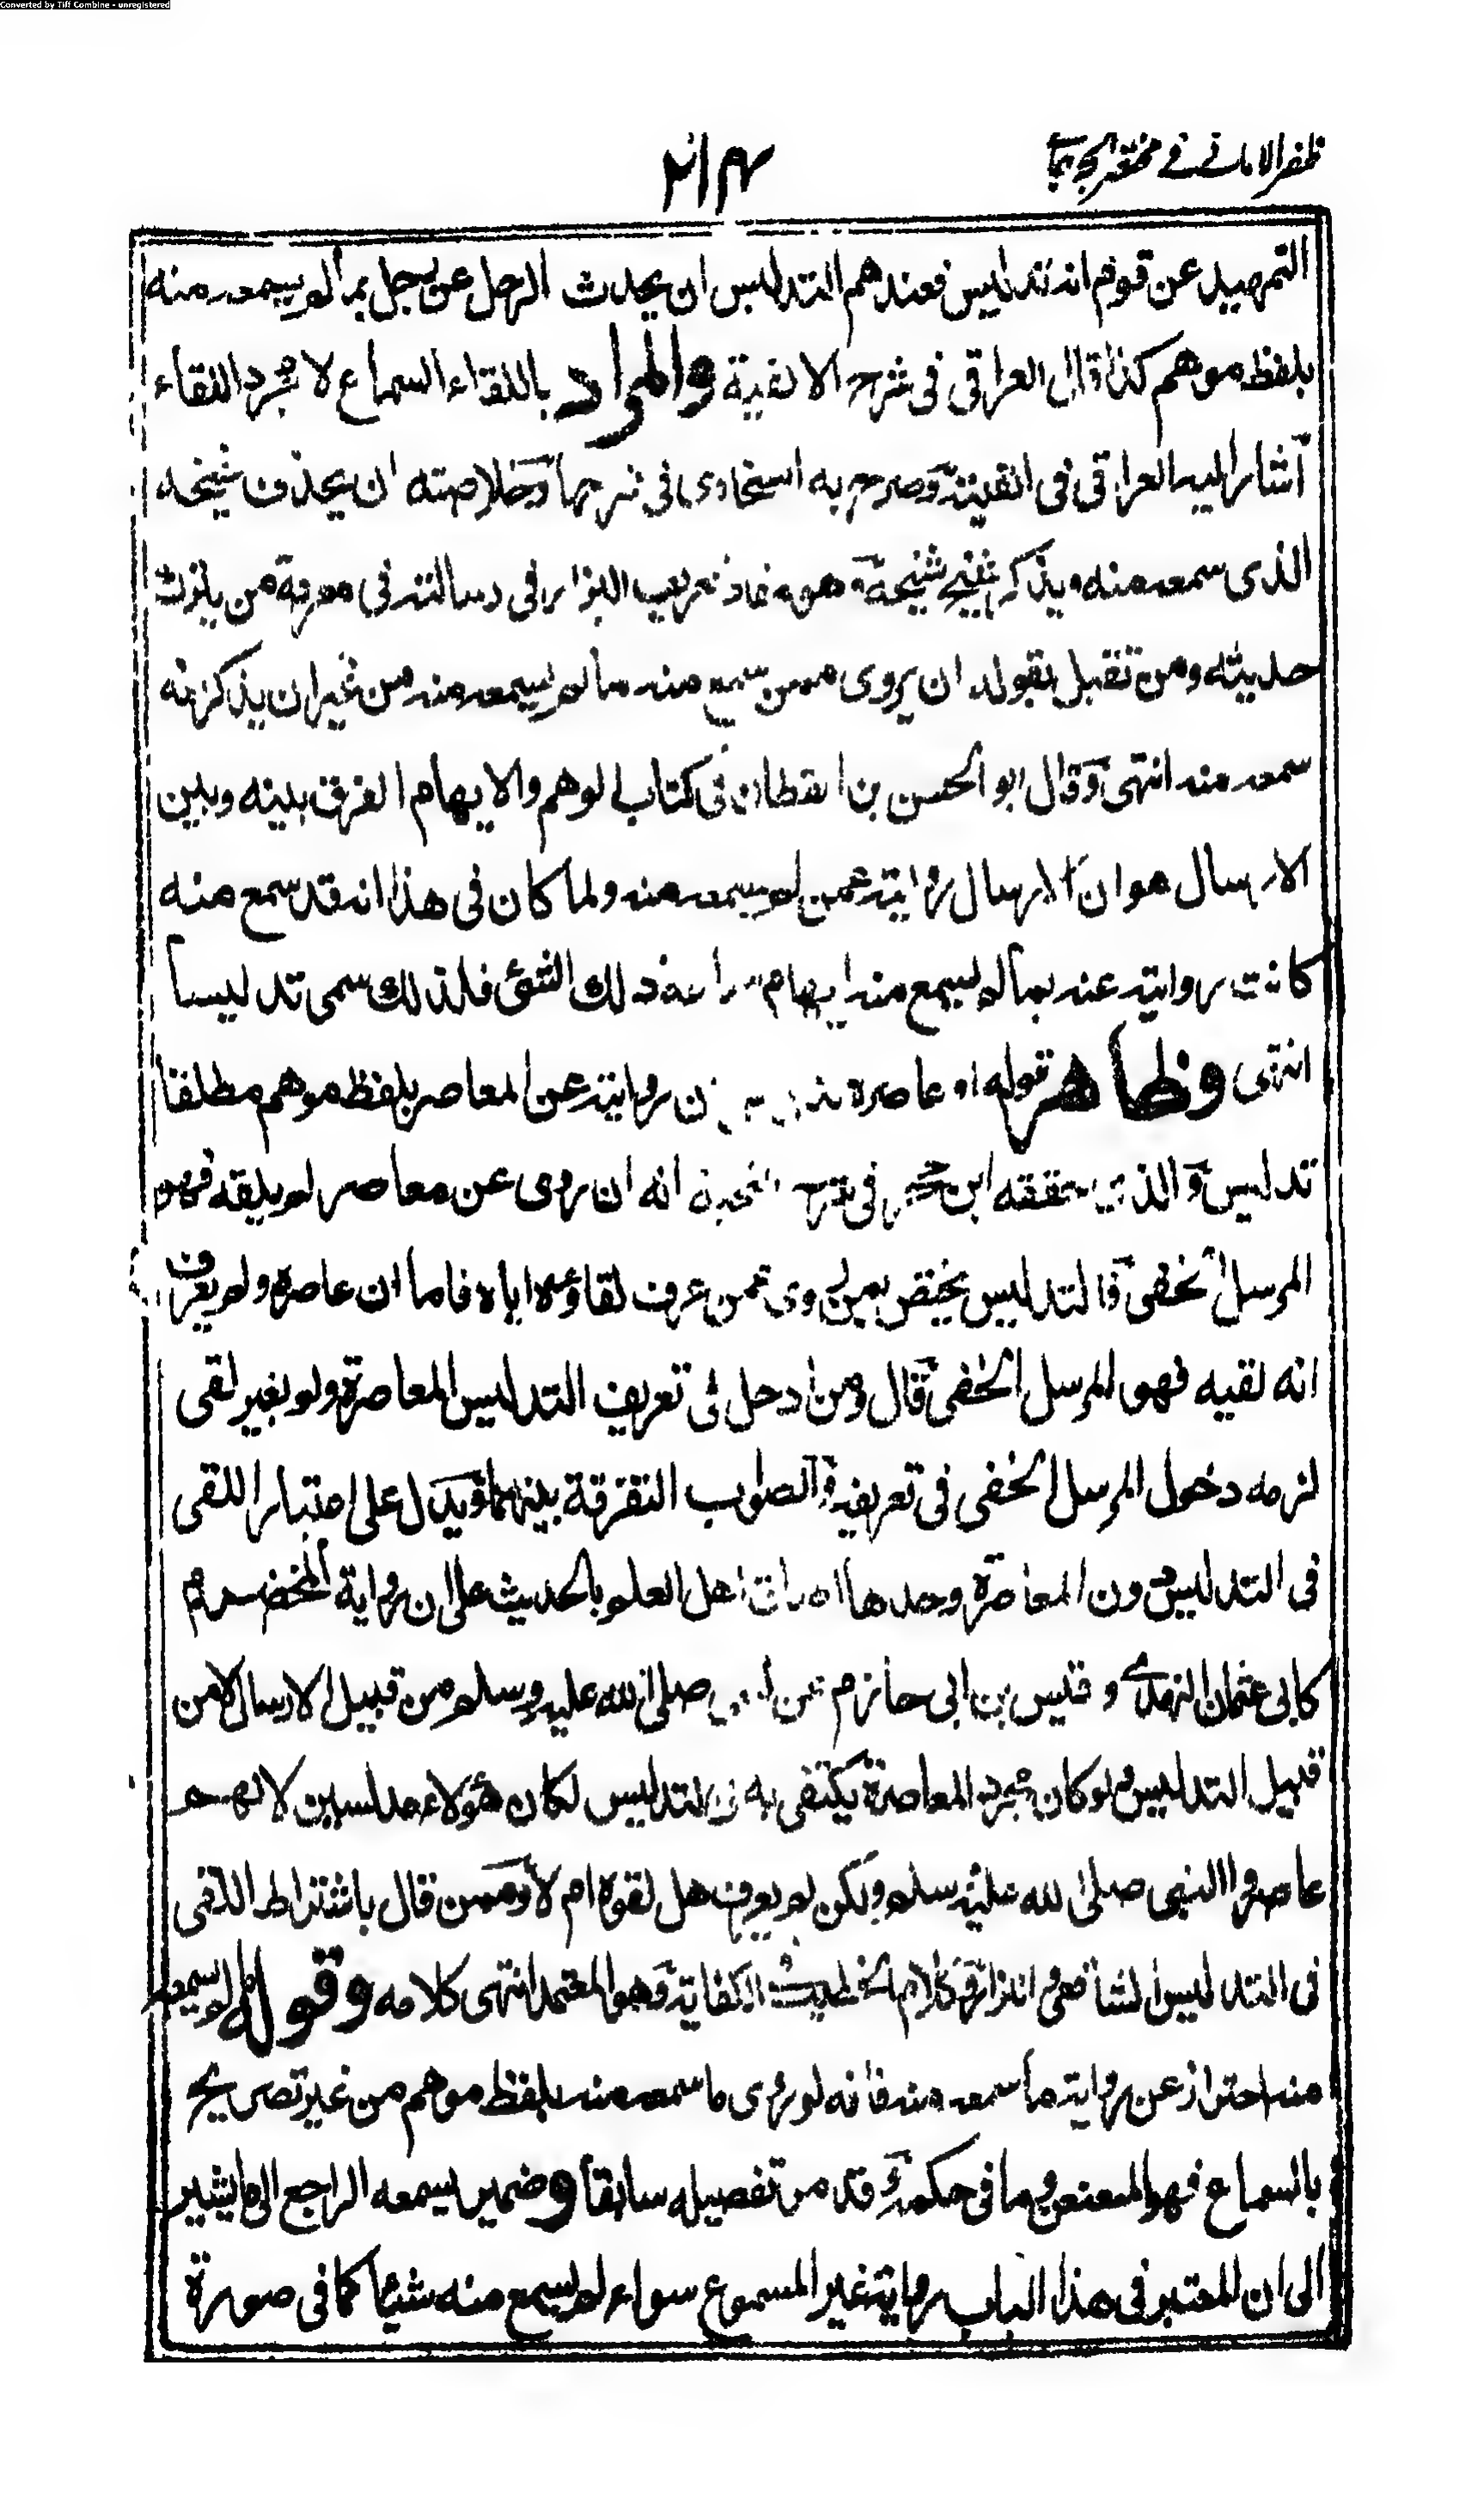 Converted by Tiff Combine - unregistered
ظفر الاماني في مختصر الجرجاني
٢١٤
التمهيد عن قوم انه تدليس فعندهم التدليس ان يحدث الرجل عن رجل بما لم يسمعه منه
بلفظ موهم كذا قال العراقى فى شرح الالفية والمراد باللقاء السماع لا مجرد اللقاء
اشار اليه العراقى فى الفيته وصرح به السخاوى فى شرحها وخلاصته ان يحذف شيخه
الذى سمعه منه ويذكر شيخ شيخه وهو مفاد تعريف البزار فى رسالته فى معرفة من يترك
حديثه ومن تقبل بقوله ان يروى عمن سمع منه ما لم يسمعه منه من غير ان يذكر انه
سمعه منه انتهى وقال ابو الحسن بن القطان فى كتاب الوهم والايهام الفرق بينه وبين
الارسال هو ان الارسال روايته عمن لم يسمعه منه ولما كان فى هذا انه قد سمع منه
كانت روايته عنه بما لم يسمع منه ايهام سماعه ذلك الشئ فلذلك سمى تدليسا
انتهى وظاهر قوله او عاصره ان روايته عن المعاصر بلفظ موهم مطلقا
تدليس والذى حققه ابن حجر فى شرح النخبة انه ان روى عن معاصر لم يلقه فهو
المرسل الخفى فالتدليس يختص بمن روى عمن عرف لقاؤه اياه فاما ان عاصره ولم يعرف
انه لقيه فهو المرسل الخفى قال ومن ادخل فى تعريف التدليس المعاصرة ولو بغير لقى
لزمه دخول المرسل الخفى فى تعريفه والصواب التفرقة بينهما ويدل على اعتبار اللقى
فى التدليس دون المعاصرة وحدها اطباق اهل العلم بالحديث على ان رواية المخضرم
كابى عثمان النهدى و قيس بن ابى حازم عن النبى صلى الله عليه وسلم من قبيل الارسال لا من
قبيل التدليس ولو كان مجرد المعاصرة يكتفى به فى التدليس لكان هؤلاء مدلسين لانهم
عاصروا النبى صلى الله عليه وسلم ولكن لم يعرف هل لقوه ام لا وممن قال باشتراط اللقى
فى التدليس الشافعى والبزار وكلام الخطيب فى الكفاية وهو المعتمد انتهى كلامه وقوله لم يسمعه
منه احتراز عن رواية ما سمعه منه فانه لو روى ما سمعه منه بلفظ موهم من غير تصريح
بالسماع فهو المعنعن وما فى حكمه وقد مر تفصيله سابقا وضمير يسمعه الراجع الى ما يشير
الى ان المعتبر فى هذا الباب رواية غير المسموع سواء لم يسمع منه شيئا كما فى صورة